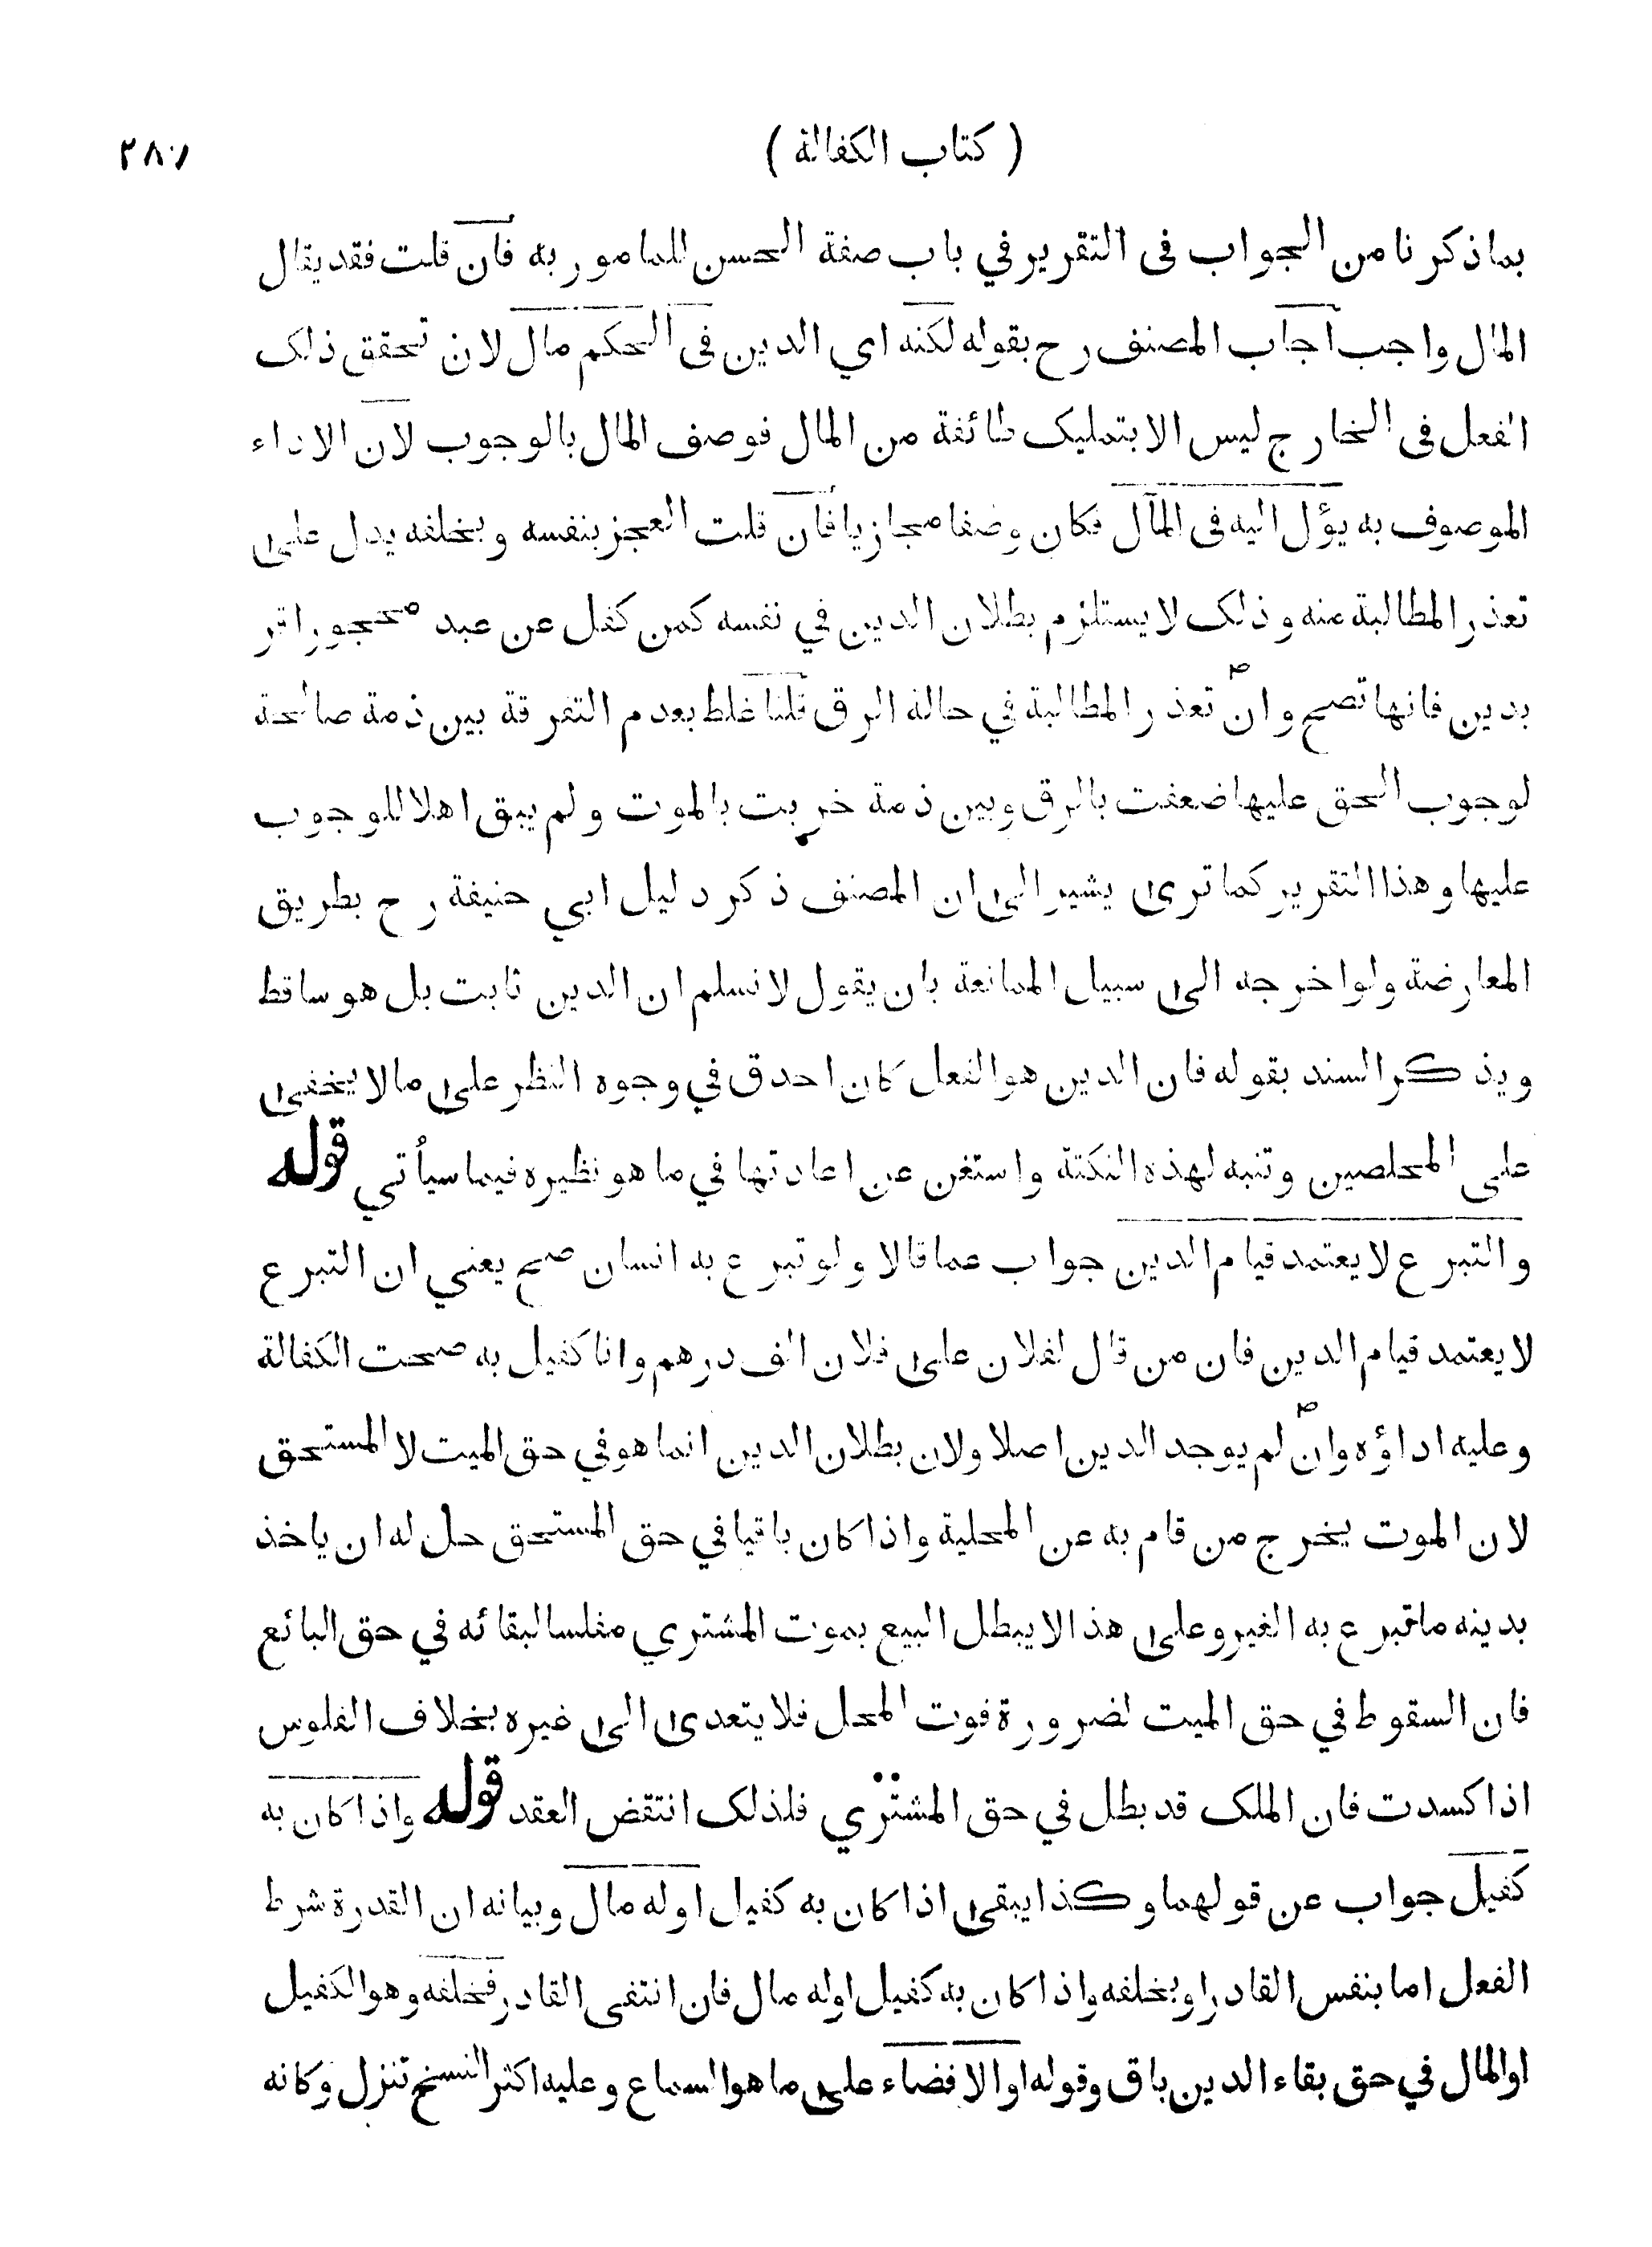 ( كتاب الكفالة )
بماذكرنا من الجواب فى التقرير في باب صفة الحسن للمامور به فان قلت فقد يقال
المال واجب اجاب المصنف رح بقوله لكنه اي الدين فى الحكم مال لان تحقق ذلك
الفعل فى الخارج ليس الا بتمليك طائفة من المال فوصف المال بالوجوب لان الاداء
الموصوف به يؤل اليه فى المآل فكان وصفا مجازيا فان قلت العجز بنفسه و بخلفه يدل على
تعذر المطالبة منه و ذلك لا يستلزم بطلان الدين في نفسه كمن كفل عن عبد محجور اقر
بدين فانها تصح و ان تعذر المطالبة في حالة الرق قلنا غلط بعدم التفرقة بين ذمة صالحة
لوجوب الحق عليها ضعفت بالرق وبين ذمة خربت بالموت ولم يبق اهلا للوجوب
عليها و هذا التقرير كما ترى يشير الى ان المصنف ذكر دليل ابي حنيفة رح بطريق
المعارضة ولو اخرجه الى سبيل الممانعة بان يقول لا نسلم ان الدين ثابت بل هو ساقط
ويذكر السند بقوله فان الدين هو الفعل كان احدق في وجوه النظر على مالا يخفى
على المحلصين وتنبه لهذه النكتة واستغن عن اعادتها في ما هو نظيره فيما سيأتي قوله
والتبرع لا يعتمد قيام الدين جواب عما قالا ولو تبرع به انسان صح يعني ان التبرع
لا يعتمد قيام الدين فان من قال لفلان على فلان الف درهم وانا كفيل به صحت الكفالة
وعليه اداؤه وان لم يوجد الدين اصلا ولان بطلان الدين انما هو في حق الميت لا المستحق
لان الموت يخرج من قام به عن المحلية واذا كان باقيا في حق المستحق حل له ان ياخذ
بدينه ما تبرع به الغير وعلى هذا لا يبطل البيع بموت المشتري مفلسا لبقائه في حق البائع
فان السقوط في حق الميت لضرورة فوت المحل فلا يتعدى الى غيره بخلاف الفلوس
اذا كسدت فان الملك قد بطل في حق المشتري فلذلك انتقض العقد قوله واذا كان به
كفيل جواب عن قولهما و كذا يبقى اذا كان به كفيل اوله مال وبيانه ان القدرة شرط
الفعل اما بنفس القادر او بخلفه واذا كان به كفيل اوله مال فان انتفى القادر فخلفه وهو الكفيل
او المال في حق بقاء الدين باق وقوله او الافضاء على ما هو السماع وعليه اكثر النسخ تنزل وكانه